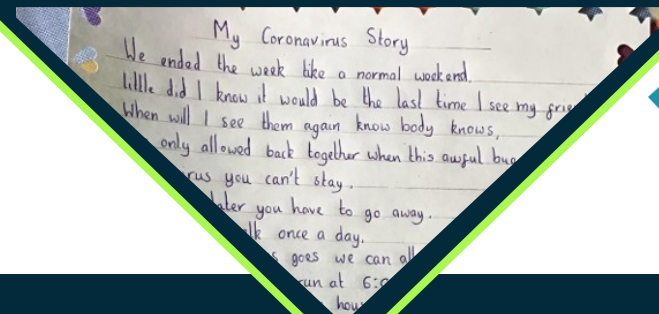 My Coronavirus Story
We ended the week like a normal weekend.
little did I know it would be the last time I see my
When will I see them again know body knows,
only allowed back together when this awful bug
you can't stay.
you have to go away.
once a day.
goes we can
at